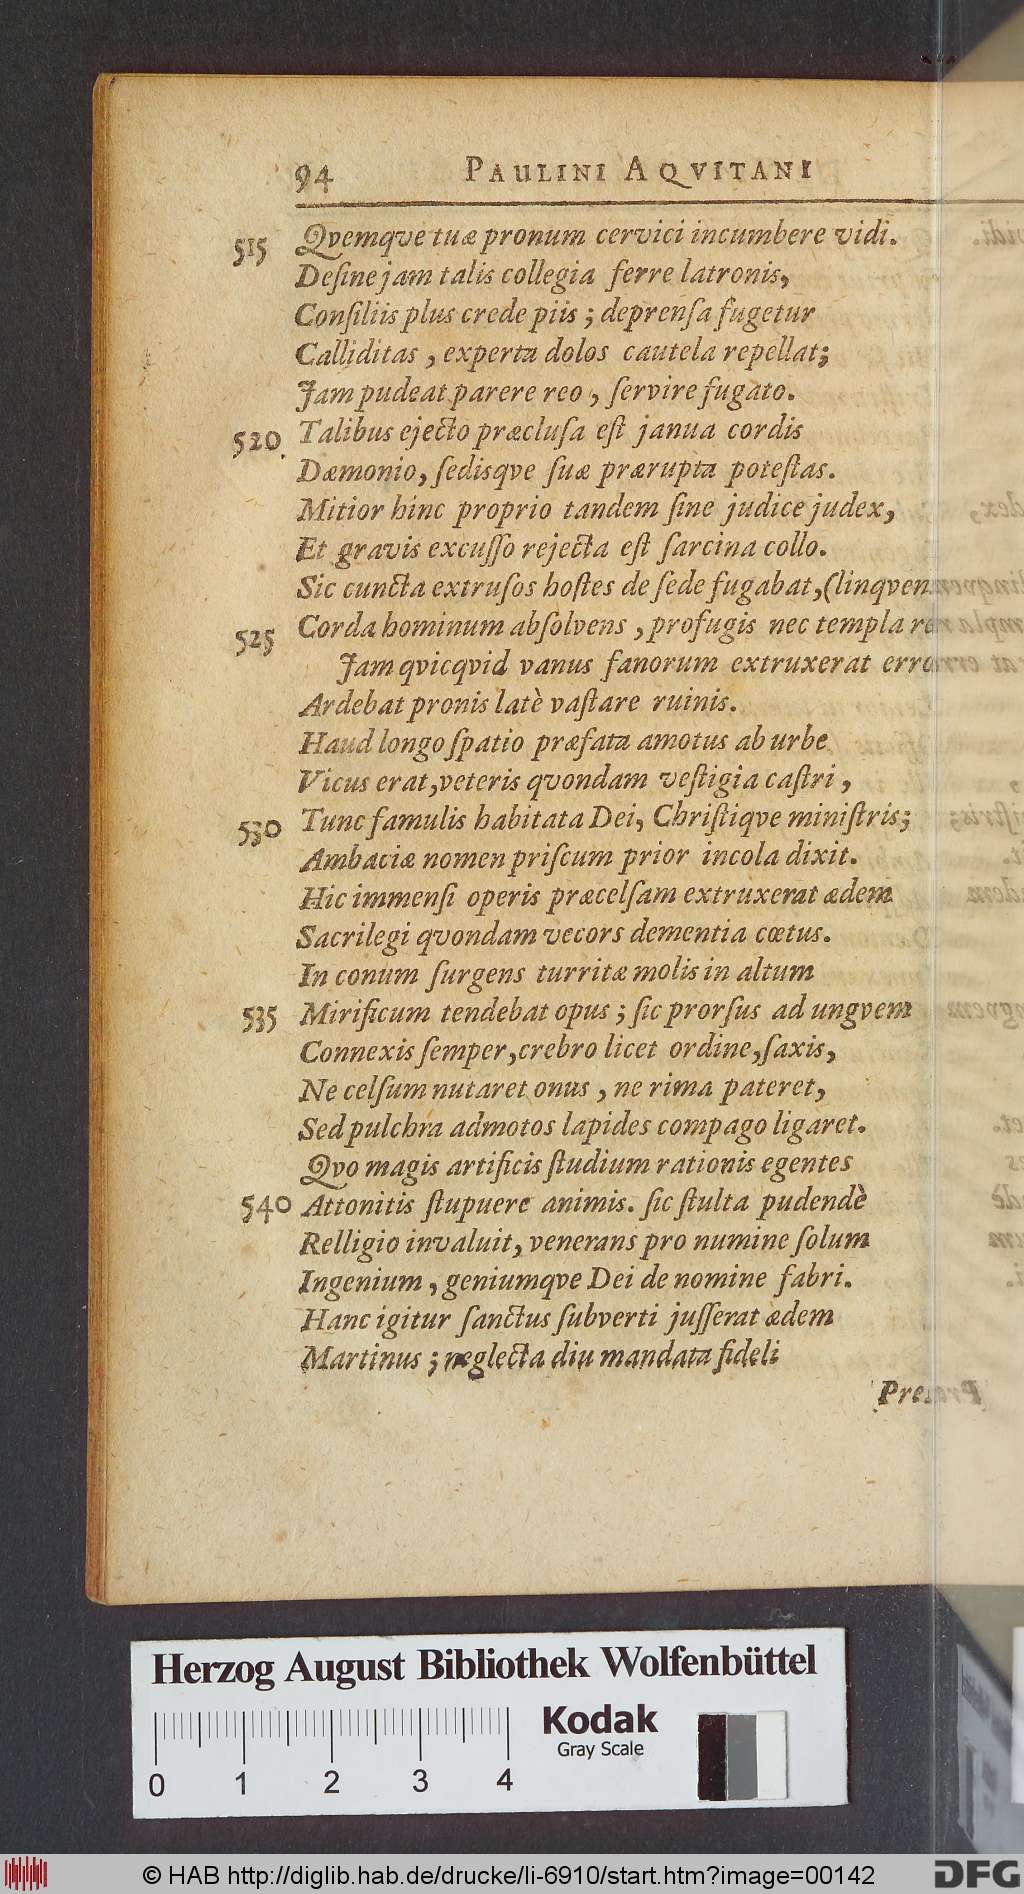 94 PAULINI AQVITANI
515 Qvemqve tuæ pronum cervici incumbere vidi.
Deſine jam talis collegia ferre latronis,
Conſiliis plus crede piis ; deprenſa fugetur
Calliditas, experta dolos cautela repellat;
Jam pudeat parere reo, ſervire fugato.
520 Talibus ejecto præcluſa eſt janua cordis
Dæmonio, ſedisqve ſuæ prærupta poteſtas.
Mitior hinc proprio tandem ſine judice judex,
Et gravis excuſſo rejecta eſt ſarcina collo.
Sic cuncta extruſos hoſtes de ſede fugabat, (linqven
525 Corda hominum abſolvens, profugis nec templa
Jam qvicqvid vanus fanorum extruxerat
Ardebat pronis latè vaſtare ruinis.
Haud longo ſpatio præfata amotus ab urbe
Vicus erat, veteris qvondam veſtigia caſtri,
530 Tunc famulis habitata Dei, Chriſtiqve miniſtris;
Ambaciæ nomen priſcum prior incola dixit.
Hic immenſi operis præcelſam extruxerat ædem
Sacrilegi qvondam vecors dementia cœtus.
In conum ſurgens turritæ molis in altum
535 Mirificum tendebat opus ; ſic prorſus ad ungvem
Connexis ſemper, crebro licet ordine, ſaxis,
Ne celſum nutaret onus, ne rima pateret,
Sed pulchra admotos lapides compago ligaret.
Qvo magis artificis ſtudium rationis egentes
540 Attonitis ſtupuere animis. ſic ſtulta pudendè
Relligio invaluit, venerans pro numine ſolum
Ingenium, geniumqve Dei de nomine fabri.
Hanc igitur ſanctus ſubverti juſſerat ædem
Martinus ; neglecta diu mandata fideli
Herzog August Bibliothek Wolfenbüttel
Kodak
Gray Scale
0 1 2 3 4
© HAB http://diglib.hab.de/drucke/li-6910/start.htm?image=00142
DFG